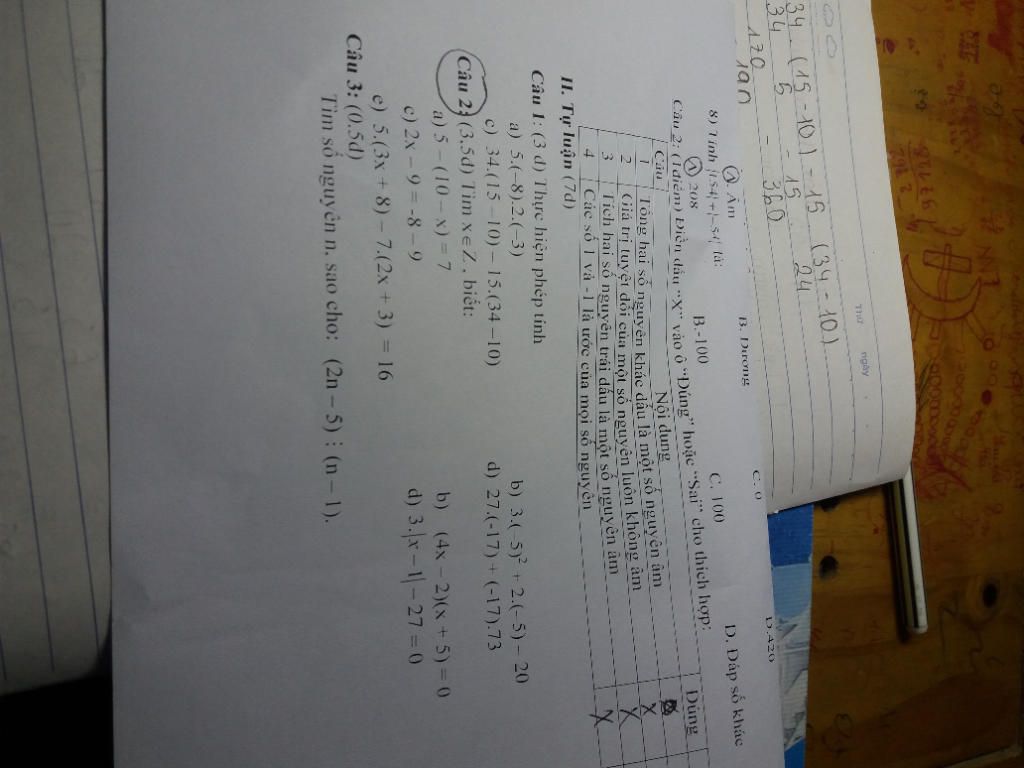 THỨ ngày
34. (15 - 10) - 15 (34 - 10)
34 5 - 15 24
170 - 360
190
A. Âm B. Dương C. 0 D. 420
8) Tính |154| + |-54| là:
A 208 B. -100 C. 100 D. Đáp số khác
Câu 2: (1điểm) Điền dấu "X" vào ô "Đúng" hoặc "Sai" cho thích hợp:
Câu Nội dung Đúng
1 Tổng hai số nguyên khác dấu là một số nguyên âm X
2 Giá trị tuyệt đối của một số nguyên luôn không âm X
3 Tích hai số nguyên trái dấu là một số nguyên âm X
4 Các số 1 và -1 là ước của mọi số nguyên
II. Tự luận (7đ)
Câu 1: (3 đ) Thực hiện phép tính
a) 5.(–8).2.(–3) b) 3.(–5)² + 2.(–5) – 20
c) 34.(15 – 10) – 15.(34 – 10) d) 27.(-17) + (-17).73
Câu 2: (3,5đ) Tìm x ∈ Z, biết:
a) 5 – (10 – x) = 7 b) (4x – 2)(x + 5) = 0
c) 2x – 9 = -8 – 9 d) 3.|x – 1| – 27 = 0
e) 5.(3x + 8) – 7.(2x + 3) = 16
Câu 3: ((0,5đ)
Tìm số nguyên n, sao cho: (2n – 5) ⋮ (n – 1).